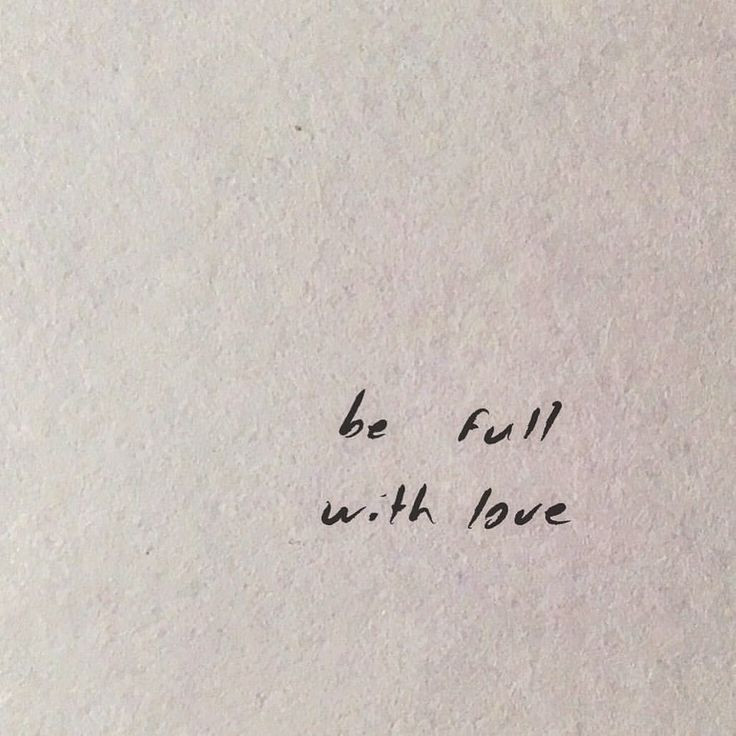 be full
with love